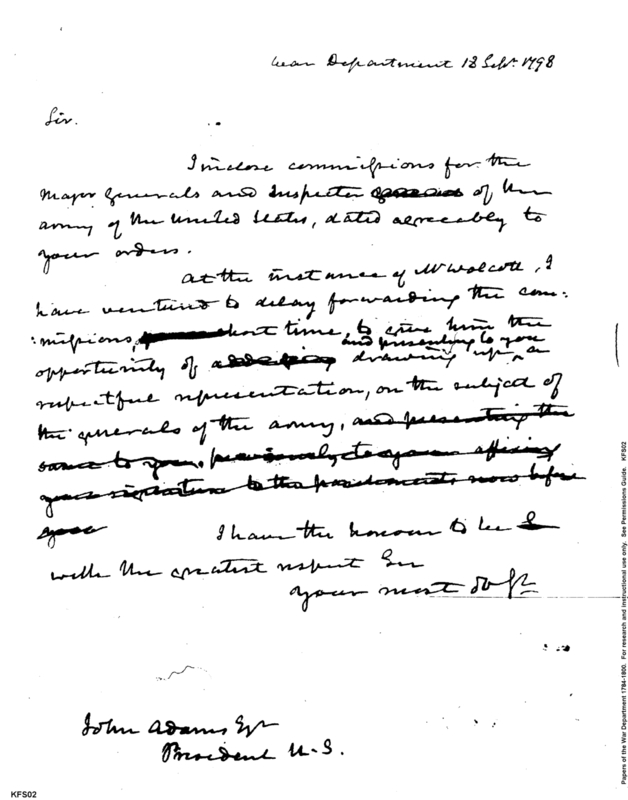 War Department 13 Sept. 1798
Sir.
I inclose commissions for the
Major Generals and Inspector of the
army of the United States, dated agreeably to
your orders.
At the instance of Mr Wolcott, I
have ventured to delay forwarding the com:
:missions, short time, to give him the
and presenting to you
opportunity of drawing up, a
respectful representation, on the subject of
the generals of the army, and presenting the
same to you, previously to your affixing
your signature to the parchments now before
you
I have the honour to be
with the greatest respect Sir
your most ob St
John Adams Esqr
President U.S.
KFS02
Papers of the War Department 1784-1800. For research and instructional use only. See Permissions Guide. KFS02